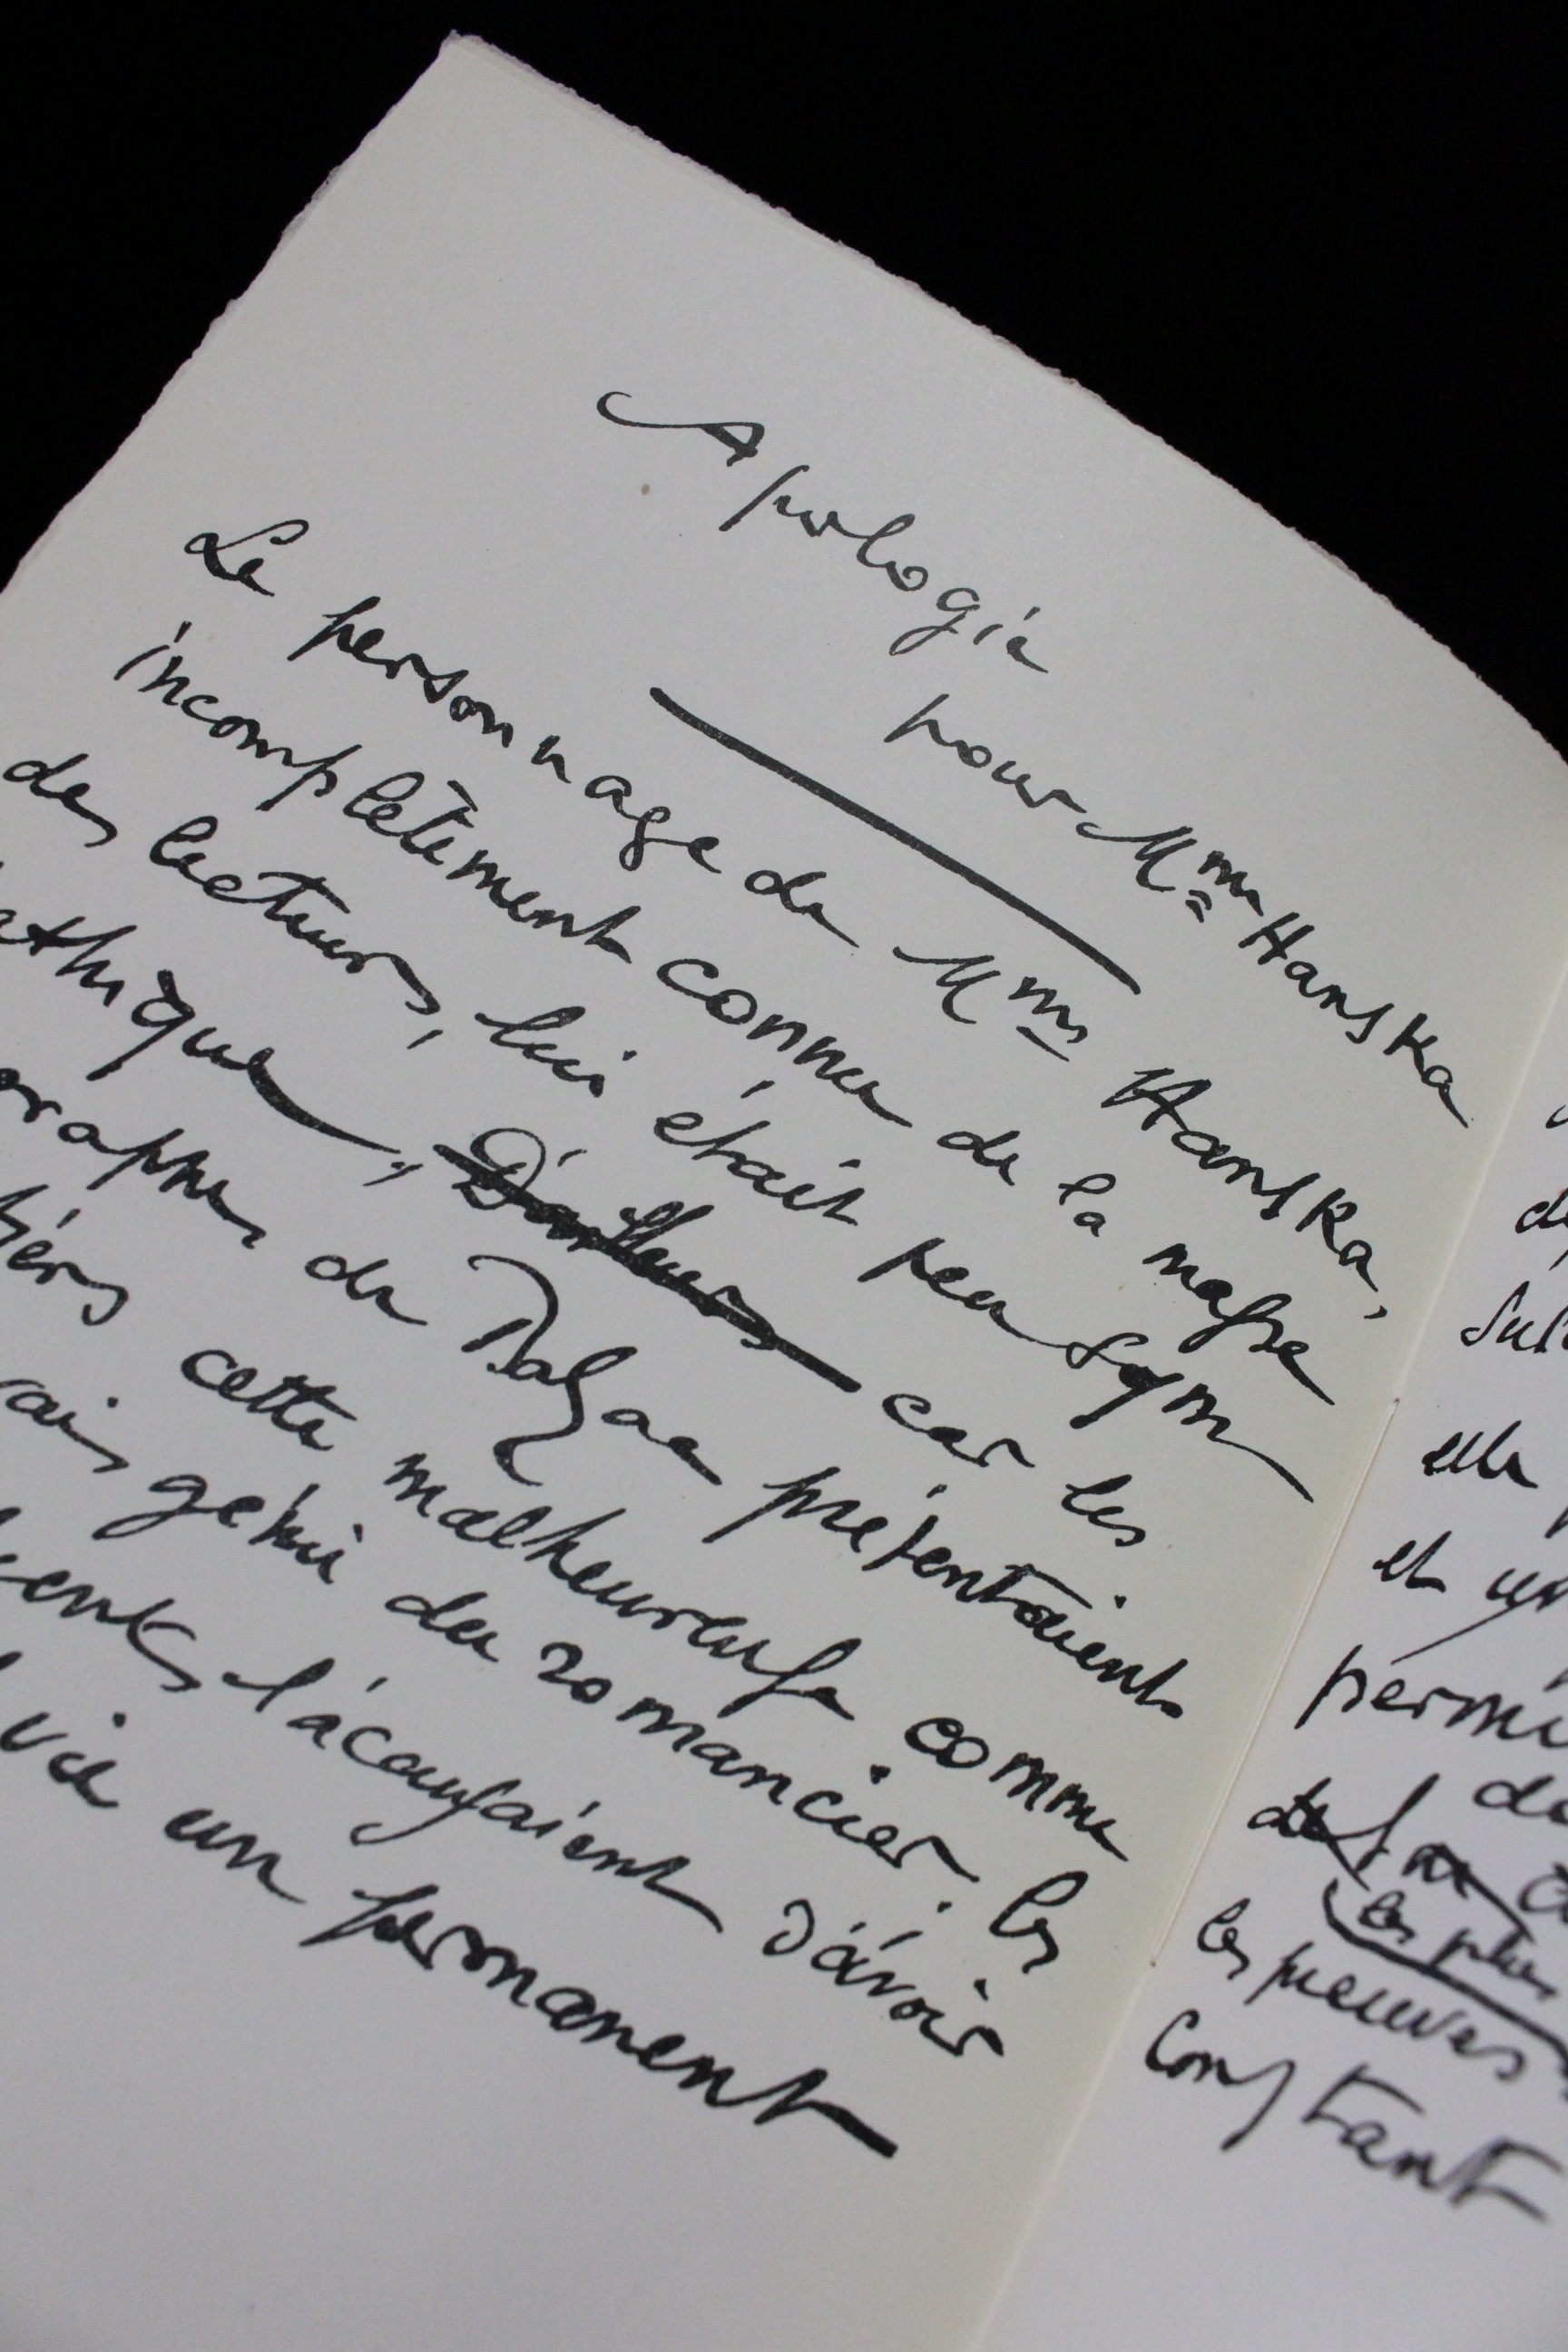 Apologie
pour Mme Hanska
Le personnage de Mme Hanska,
incomplètement connu de la masse
des lecteurs, lui était peu sym
athique, D'ailleurs car les
graphes de Balzac présentaient
cette malheureuse comme
génie du romancier. les
l'accusaient d'avoir
vie un permanent
elle
et
permi
les plus
les preuves
constant